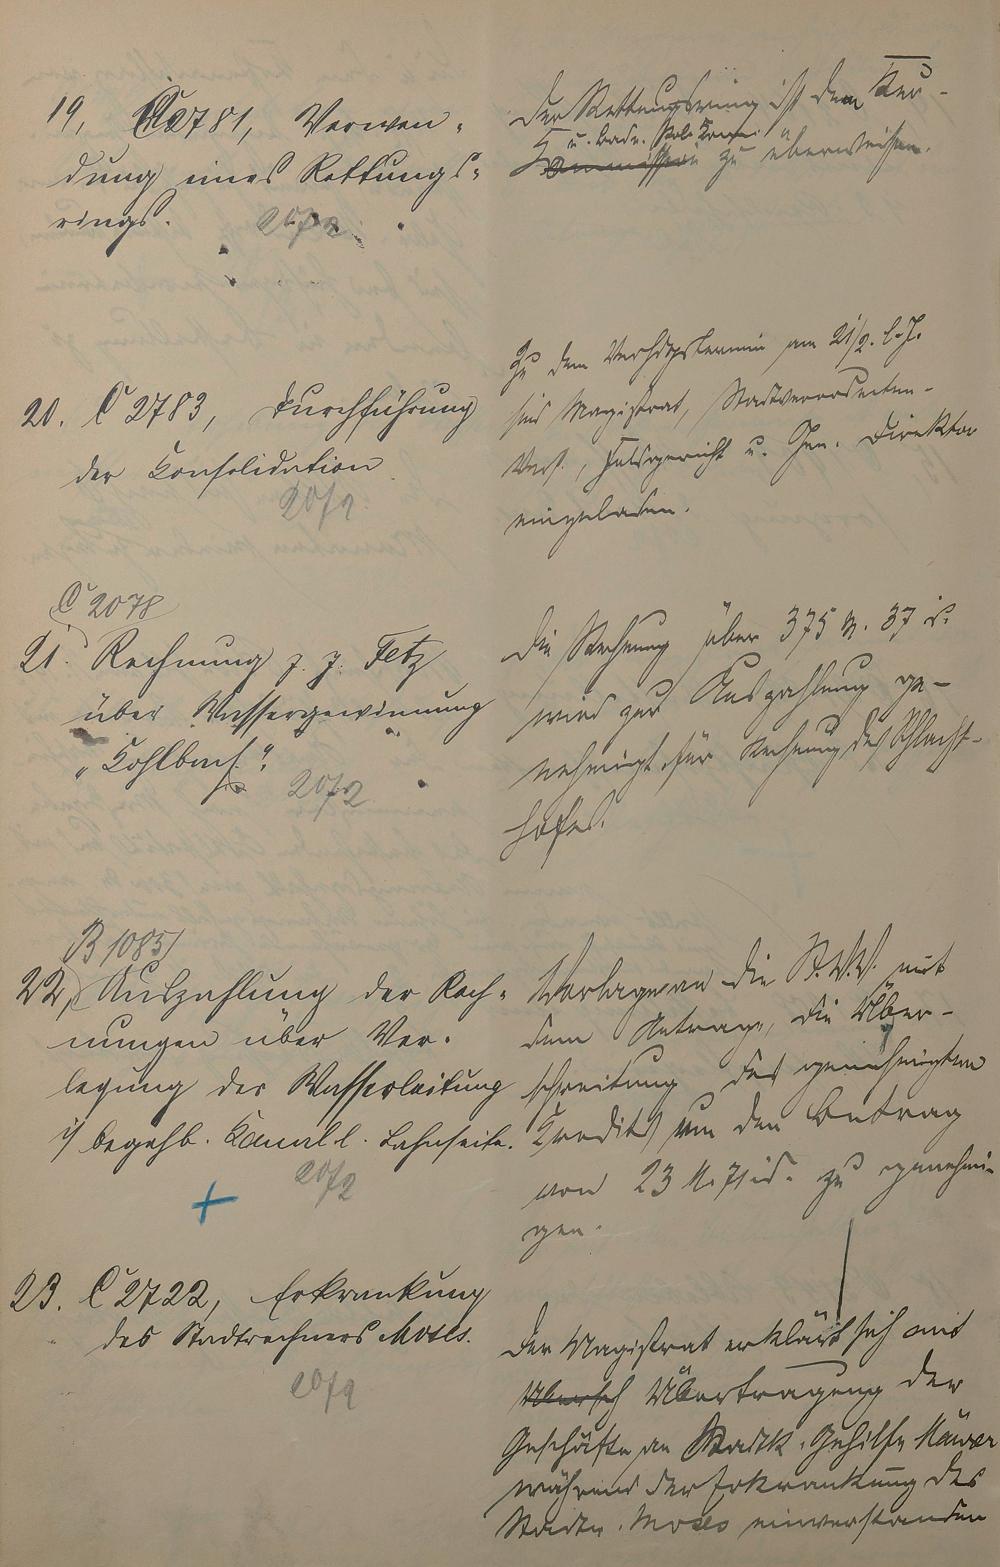 19, C 2781, Verwen-
dung eines Rettungs-
rings.
20/2
Der Rettungsring ist dem Kur-
u. Bade. Pol. Komm.
Kommission zu überweisen.
20. C 2783, Durchführung
der Consolidation
20/2.
Zu dem Verhdgstermin am 21/2. l. J.
sind Magistrat, Stadtverordneten-
Vers., Feldgericht u. Gen. Direktor
eingeladen.
C 2078
21. Rechnung J. J. Fetz
über Wassergewinnung
„Kohlbach“.
20/2
Die Rechnung über 375 M. 37 d.
wird zur Auszahlung ge-
nehmigt für Rechnung des Schlacht-
hofes.
B 1085/
22, Auszahlung der Rech-
nungen über Ver-
legung der Wasserleitung
i/ begehb. Kanal l. Lahnseite.
20/2
Vorlage an die St. V. V. mit
dem Antrage, die Über-
schreitung des genehmigten
Kredits um den Betrag
von 23 M. 71 d. zu genehmi-
gen.
23. C 2722, Erkrankung
des Stadtrechners Moses.
20/2
Der Magistrat erklärt sich mit
Übersch Übertragung der
Geschäfte an Stadtk. Gehilfe
während der Erkrankung des
Stadtr. Moses einverstanden